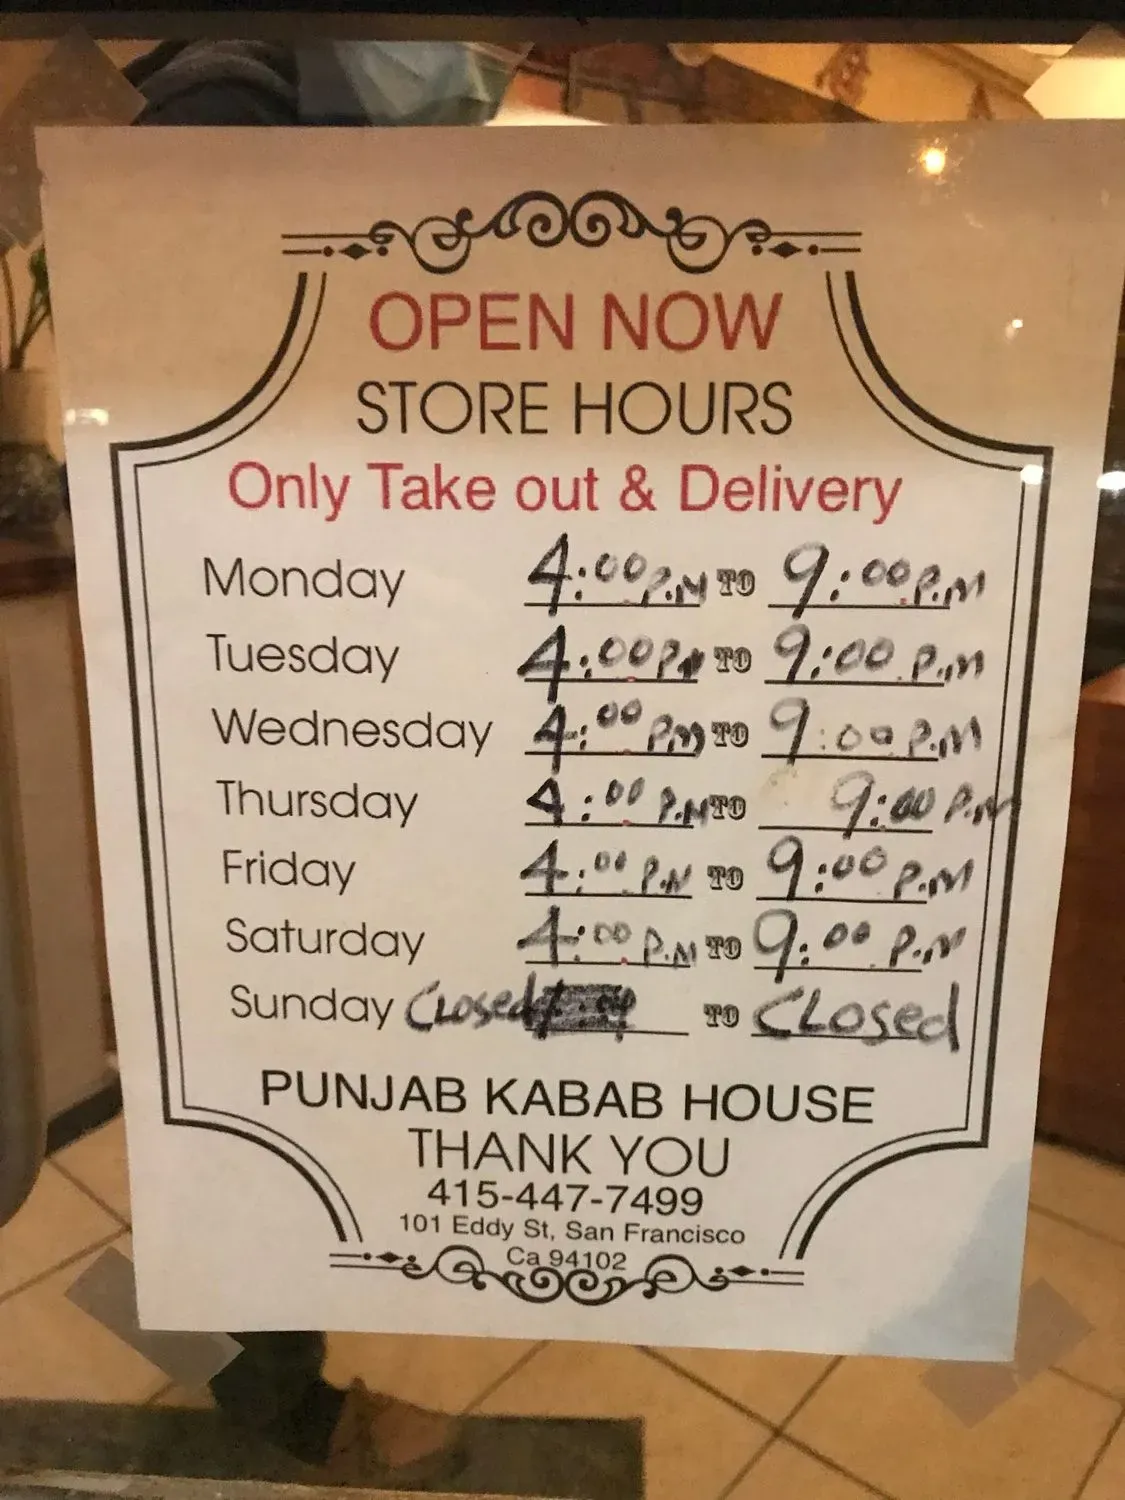 OPEN NOW
STORE HOURS
Only Take out & Delivery
Monday 4:00 P.M TO 9:00 P.M
Tuesday 4:00 PM TO 9:00 P.M
Wednesday 4:00 PM TO 9:00 P.M
Thursday 4:00 P.M TO 9:00 P.M
Friday 4:00 P.M TO 9:00 P.M
Saturday 4:00 P.M TO 9:00 P.M
Sunday CLosed TO CLosed
PUNJAB KABAB HOUSE
THANK YOU
415-447-7499
101 Eddy St, San Francisco
Ca 94102